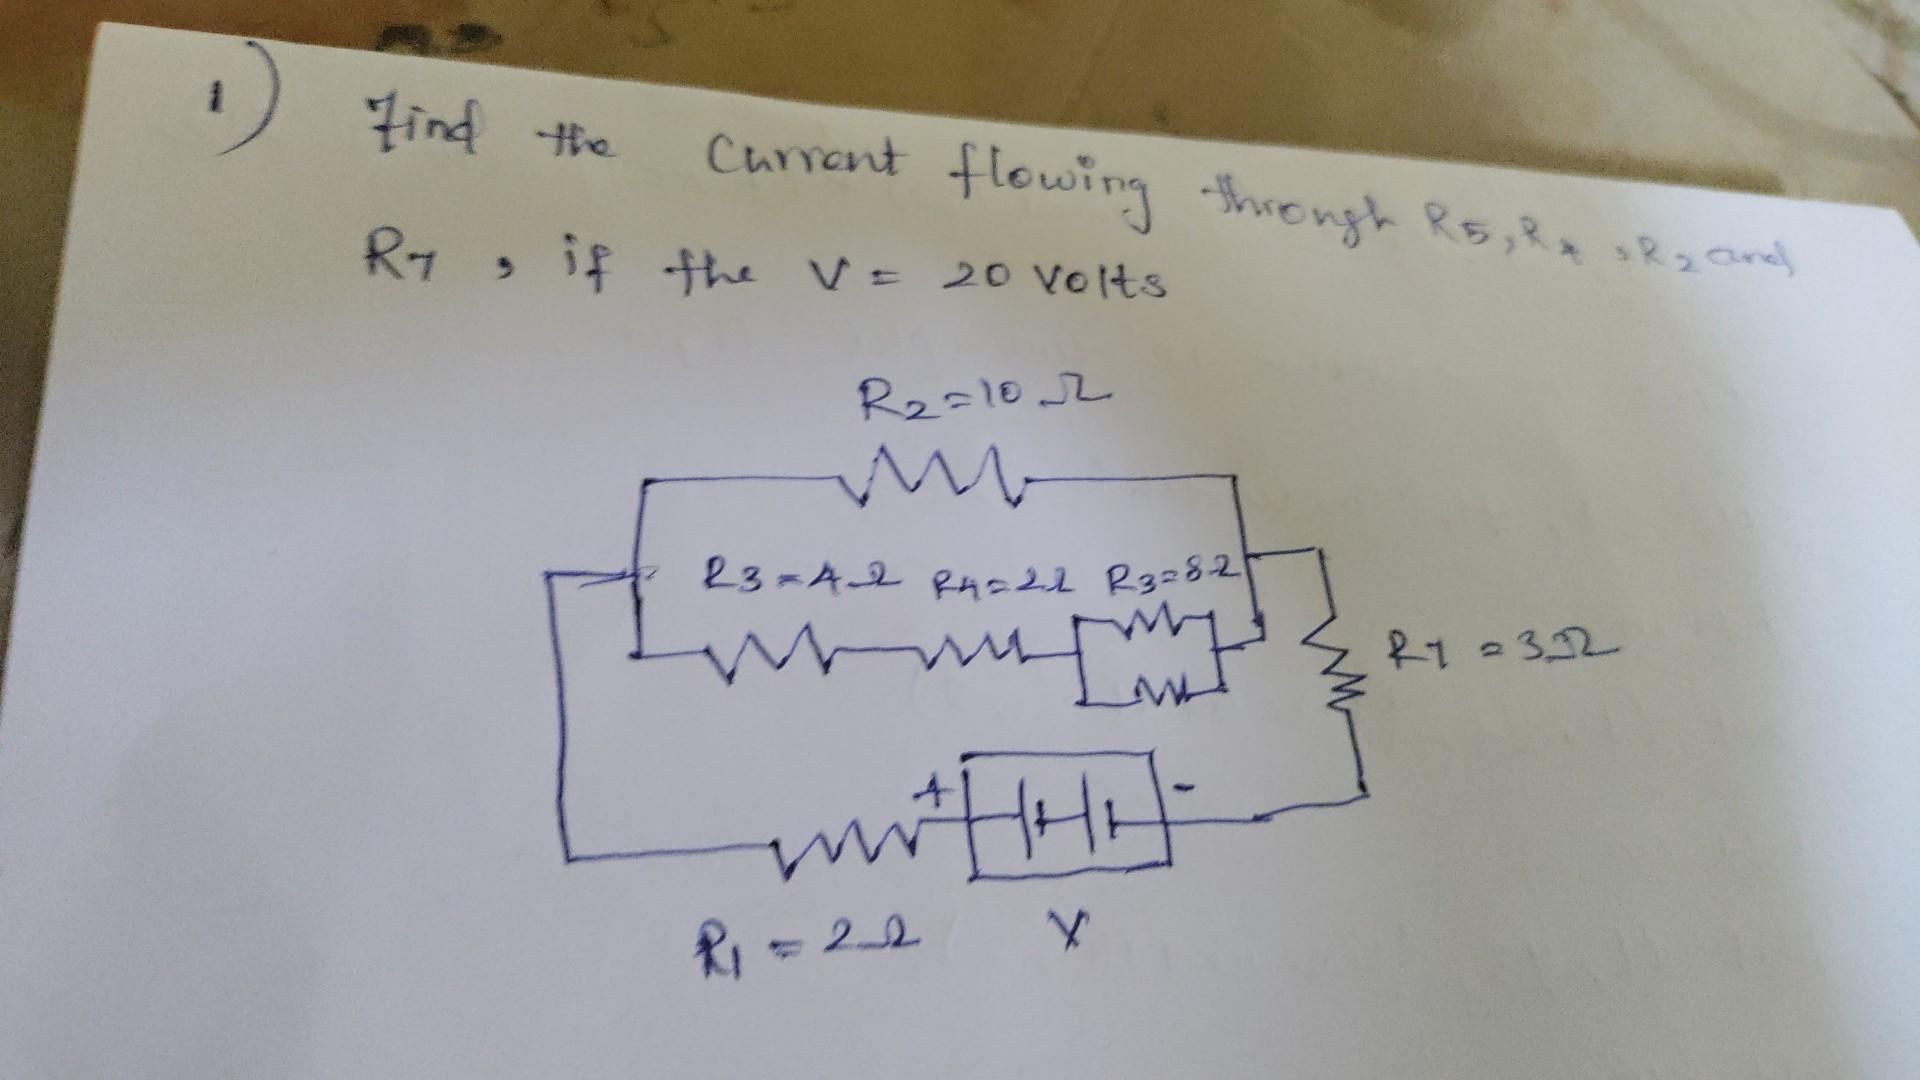 1) Find the Current flowing through R5, R4, R2 and
R7, if the V = 20 Volts
R2=10Ω
R3=4Ω R4=2Ω R3=8Ω
R7=3Ω
+ -
R1=2Ω V